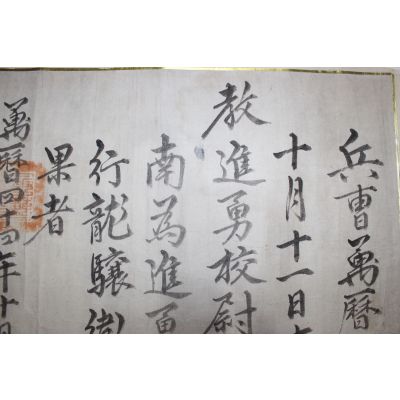 兵曹萬曆
十月十一日
教進勇校尉
南為進勇
行龍驤衛
果者
萬曆四十四年十月